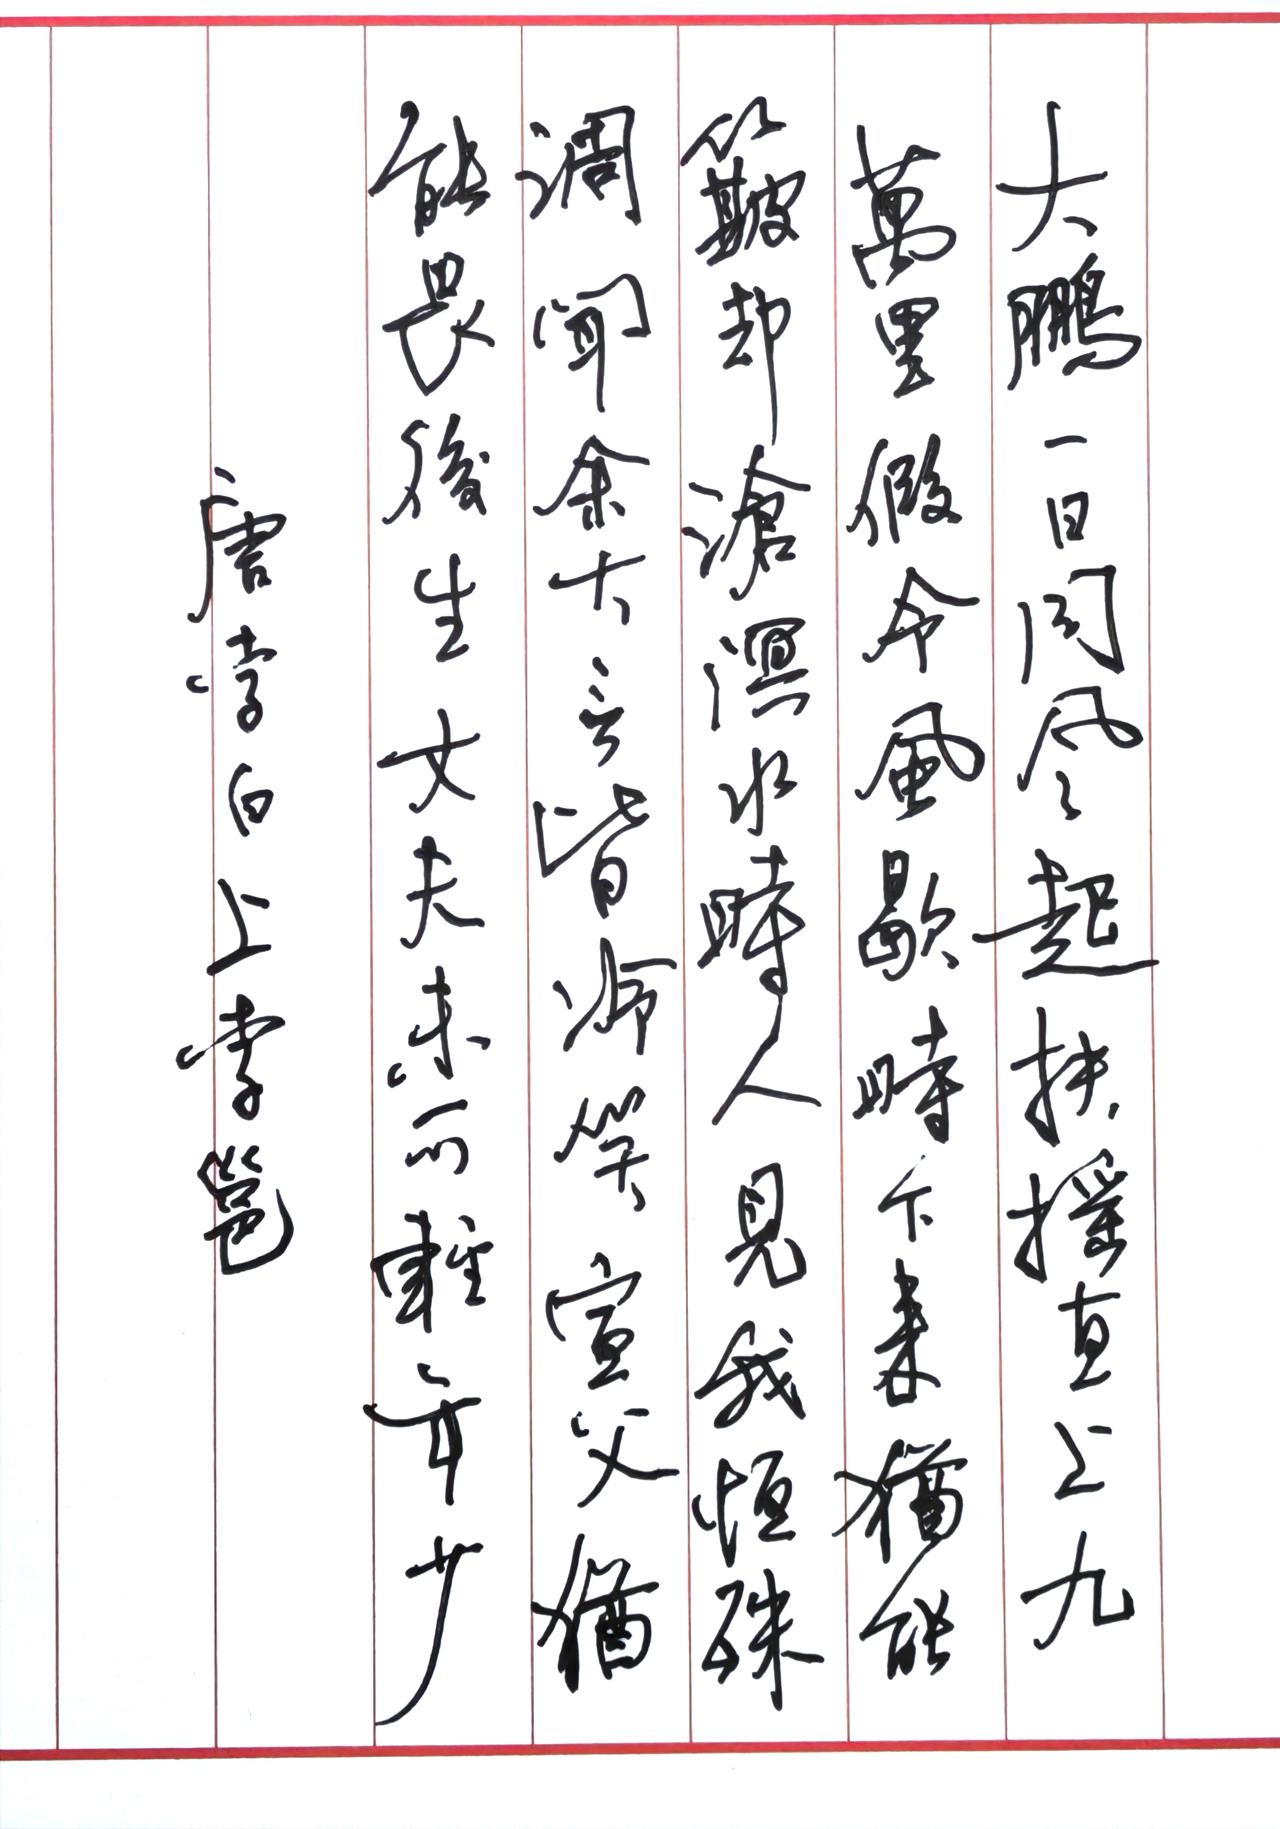 大鵬一日同风起扶摇直上九
萬里假令風歇時下来猶能
簸却滄溟水時人見我恒殊
調聞余大言皆冷笑宣父猶
能畏後生丈夫未可輕年少
唐李白上李邕